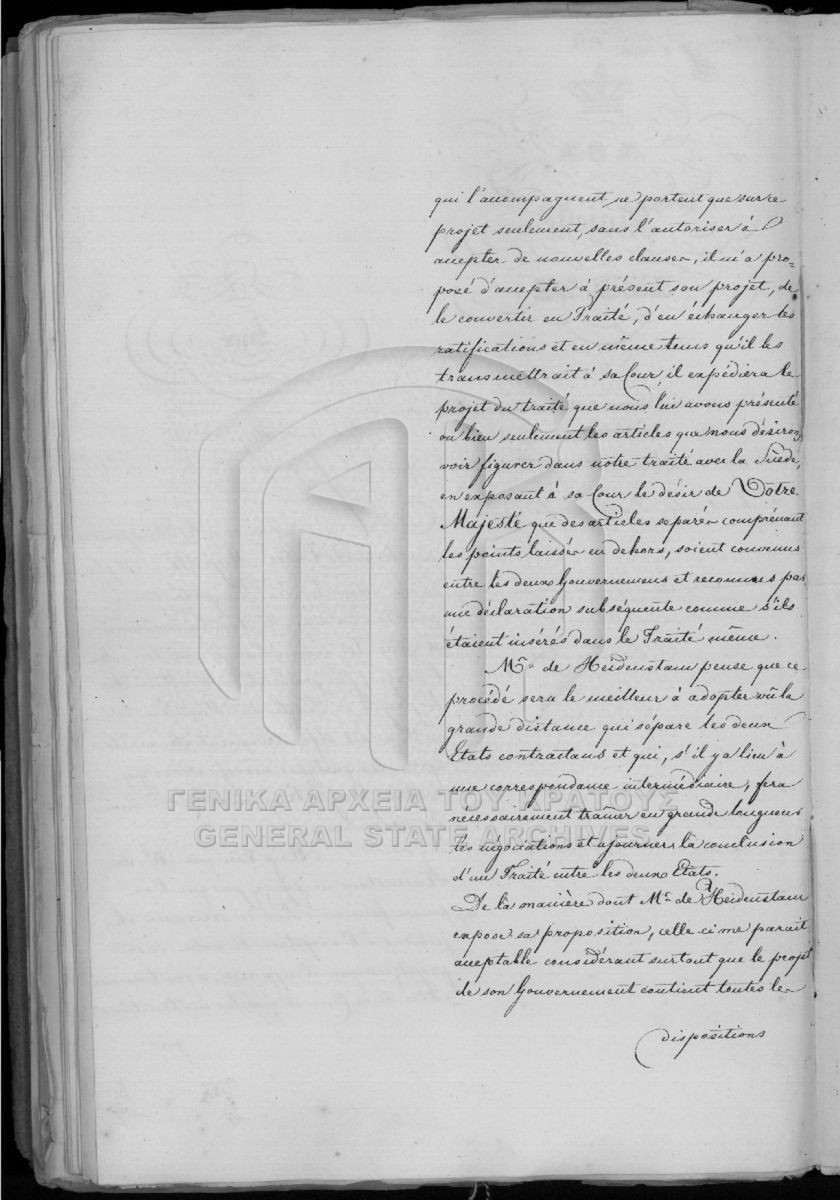 qui l'accompagnent ne portent que sur ce
projet seulement, sans l'autoriser à
accepter de nouvelles clauses, il m'a pro=
posé d'accepter à présent son projet, de
le convertir en Traité, d'en échanger les
ratifications et en même tems qu'il les
transmettrait à sa Cour il expédiera le
projet du traité que nous lui avons présenté
ou bien seulement les articles que nous désirons
voir figurer dans notre traité avec la Suède,
en exposant à sa Cour le désir de Votre
Majesté que des articles séparés comprenant
les points laissés en dehors, soient convenus
entre les deux Gouvernemens et reconnus par
une déclaration subséquente comme s'ils
étaient insérés dans le Traité même.
Mr. de Heidenstam pense que ce
procédé sera le meilleur à adopter vû la
grande distance qui sépare les deux
Etats contractans et qui, s'il y a lieu à
une correspondance intermédiaire, fera
nécessairement traîner en grande longueur
les négociations et ajourner la conclusion
d'un Traité entre les deux Etats.
De la manière dont Mr. de Heidenstam
expose sa proposition, celle-ci me parait
acceptable considérant surtout que le projet
de son Gouvernement contient toutes les
dispositions
ΓΕΝΙΚΑ ΑΡΧΕΙΑ ΤΟΥ ΚΡΑΤΟΥΣ
GENERAL STATE ARCHIVES